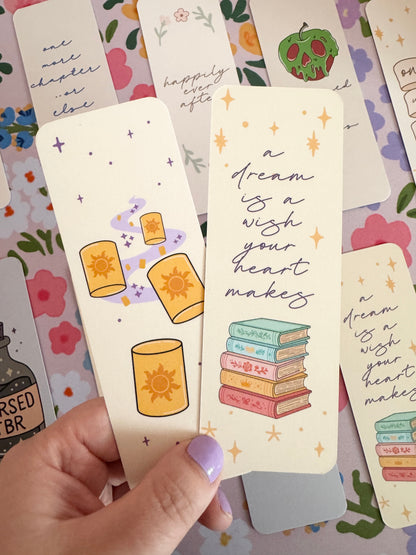 one
more
chapter
..or
else
happily
ever
after
a
dream
is a
wish
your
heart
makes
a
dream
is a
wish
your
heart
makes
RSED
TBR